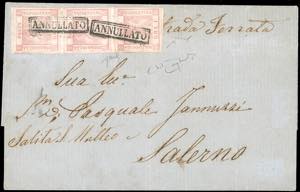 ANNULLATO ANNULLATO
Strada Ferrata
Sua
Pasquale Jannuzzi
Salita S. Matteo
Salerno